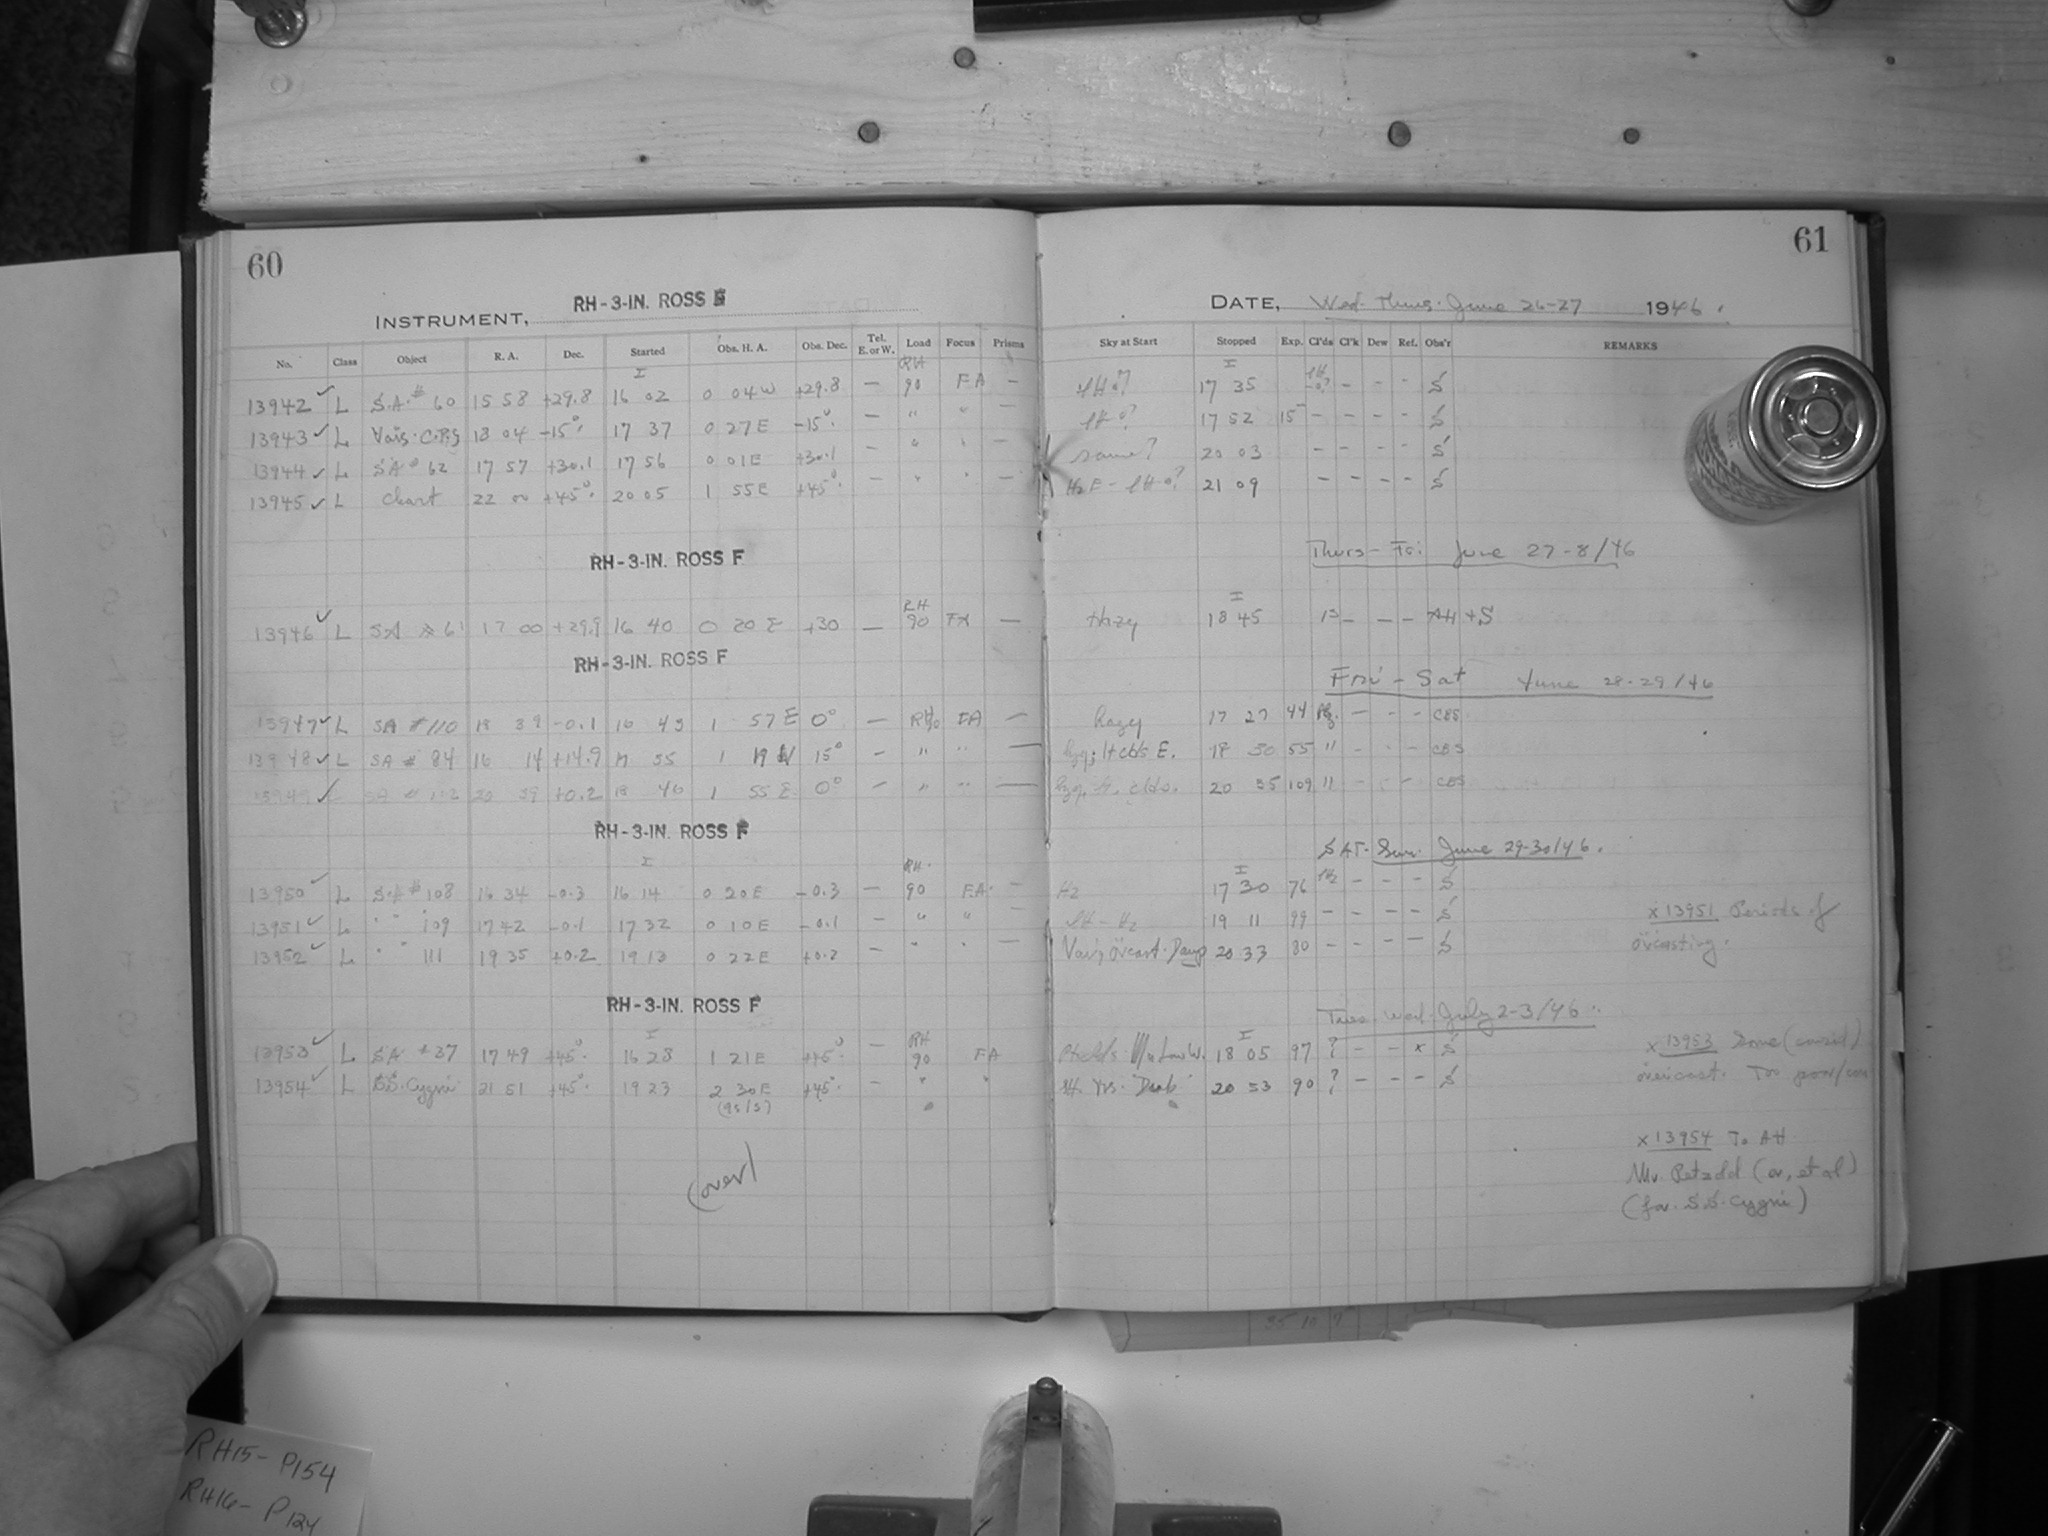 60
INSTRUMENT, RH-3-IN. ROSS
No. Class Object R. A. Dec. Started Obs. H. A. Obs. Dec. Tel. E. or W. Load Focus Prisms
13942 ✓ L S.A. # 60 15 58 +29.8 16 02 0 04 W +29.8 — RH 90 FA —
13943 ✓ L 18 04 -15° 17 37 0 27 E -15° — " " —
13944 ✓ L SA # 62 17 57 +30.1 17 56 0 01 E +30.1 — " " —
13945 ✓ L Chart 22 00 +45° 20 05 1 55 E +45° — " " —
RH-3-IN. ROSS F
13946 ✓ L SA # 61 17 00 +29.9 16 40 0 20 E +30 — RH 90 FA —
RH-3-IN. ROSS F
13947 ✓ L SA # 110 18 39 -0.1 16 43 1 57 E 0° — RH 90 FA —
13948 ✓ L SA # 84 16 14 +14.9 17 35 1 19 W 15° — " " —
13949 ✓ L SA # 112 20 39 +0.2 18 46 1 55 E 0° — " " —
RH-3-IN. ROSS F
13950 ✓ L S.A # 108 16 34 -0.3 16 14 0 20 E -0.3 — RH 90 FA —
13951 ✓ L " " 109 17 42 -0.1 17 32 0 10 E -0.1 — " " —
13952 ✓ L " " 111 19 35 +0.2 19 13 0 22 E +0.2 — " " —
RH-3-IN. ROSS F
13953 ✓ L SA # 37 17 49 +45° 16 28 1 21 E +45° — RH 90 FA
13954 ✓ L S.S. Cygni 21 51 +45° 19 23 2 30 E +45° — " "
(over)
61
DATE, Wed. Thurs. June 26-27 1946.
Sky at Start Stopped Exp. Cl'ds Cl'k Dew Ref. Obs'r REMARKS
17 35 — — — S
17 52 15 — — — — S
same? 20 03 — — — — S
21 09 — — — — S
Thurs - Fri June 27-8/46
Hazy 18 45 — — — AH + S
Fri - Sat June 28-29/46
hazy 17 27 44 — — — CBS
18 30 55 " — — — CBS
20 35 109 " — — — CBS
SAT. Sun. June 29-30/46.
Hz 17 30 76 — — — S
19 11 99 — — — — S
20 33 80 — — — — S
x 13951 Periods of
overcasting.
Tues. Wed. July 2-3/46
18 05 97 ? — — x S
20 53 90 ? — — — S
x 13953 Some (consid)
overcast. Too poor
x 13954 To AH
Mr. Petzold (or, et al)
(for S.S. Cygni)
RH15 - P154
RH16 - P124